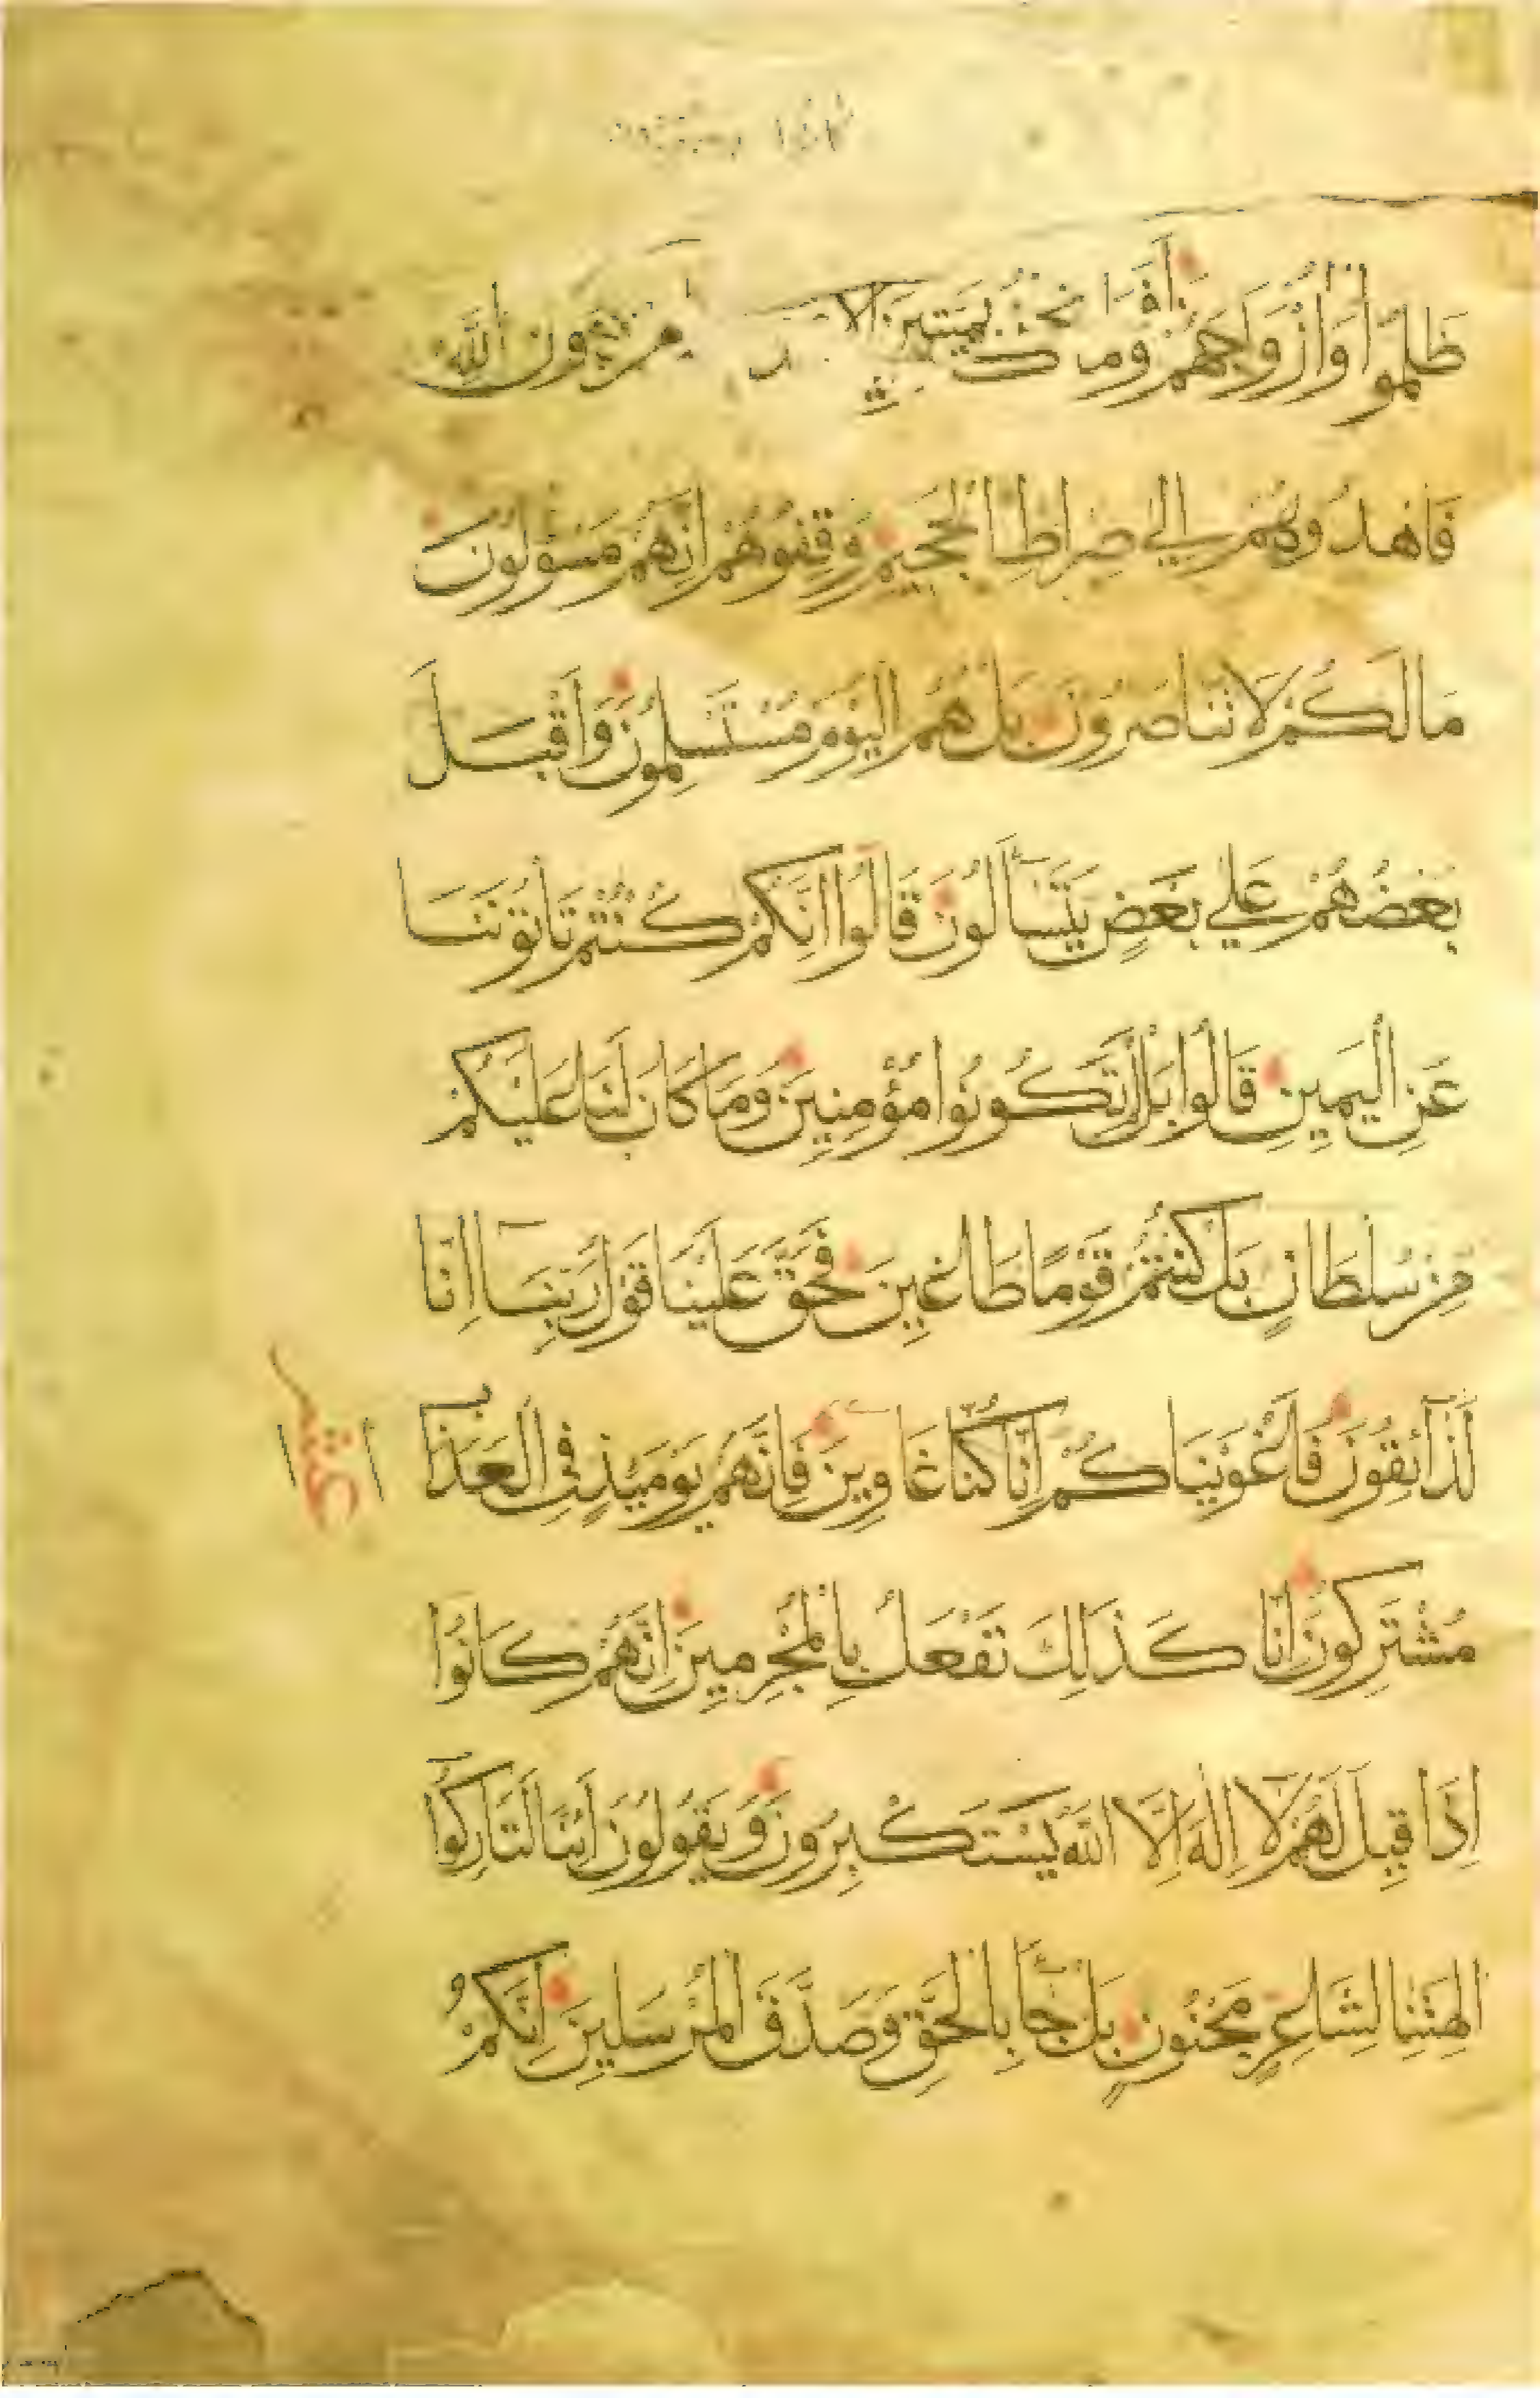 ظَلَمُوا وَأَزْوَاجَهُمْ وَمَا
أَفَمَا نَحْنُ بِمَيِّتِينَ إلا
مِنْ دُونِ اللَّهِ
فَاهْدُوهُمْ إِلَى صِرَاطِ الْجَحِيمِ وَقِفُوهُمْ إِنَّهُمْ مَسْؤُولُونَ
مَا لَكُمْ لَا تَنَاصَرُونَ بَلْ هُمُ الْيَوْمَ مُسْتَسْلِمُونَ وَأَقْبَلَ
بَعْضُهُمْ عَلَى بَعْضٍ يَتَسَاءَلُونَ قَالُوا إِنَّكُمْ كُنْتُمْ تَأْتُونَنَا
عَنِ الْيَمِينِ قَالُوا بَلْ لَمْ تَكُونُوا مُؤْمِنِينَ وَمَا كَانَ لَنَا عَلَيْكُمْ
مِنْ سُلْطَانٍ بَلْ كُنْتُمْ قَوْمًا طَاغِينَ فَحَقَّ عَلَيْنَا قَوْلُ رَبِّنَا إِنَّا
لَذَائِقُونَ فَأَغْوَيْنَاكُمْ إِنَّا كُنَّا غَاوِينَ فَإِنَّهُمْ يَوْمَئِذٍ فِي الْعَذَابِ
مُشْتَرِكُونَ إِنَّا كَذَلِكَ نَفْعَلُ بِالْمُجْرِمِينَ إِنَّهُمْ كَانُوا
إِذَا قِيلَ لَهُمْ لَا إِلَهَ إِلَّا اللَّهُ يَسْتَكْبِرُونَ وَيَقُولُونَ أَئِنَّا لَتَارِكُوا
آلِهَتِنَا لِشَاعِرٍ مَجْنُونٍ بَلْ جَاءَ بِالْحَقِّ وَصَدَّقَ الْمُرْسَلِينَ إِنَّكُمْ